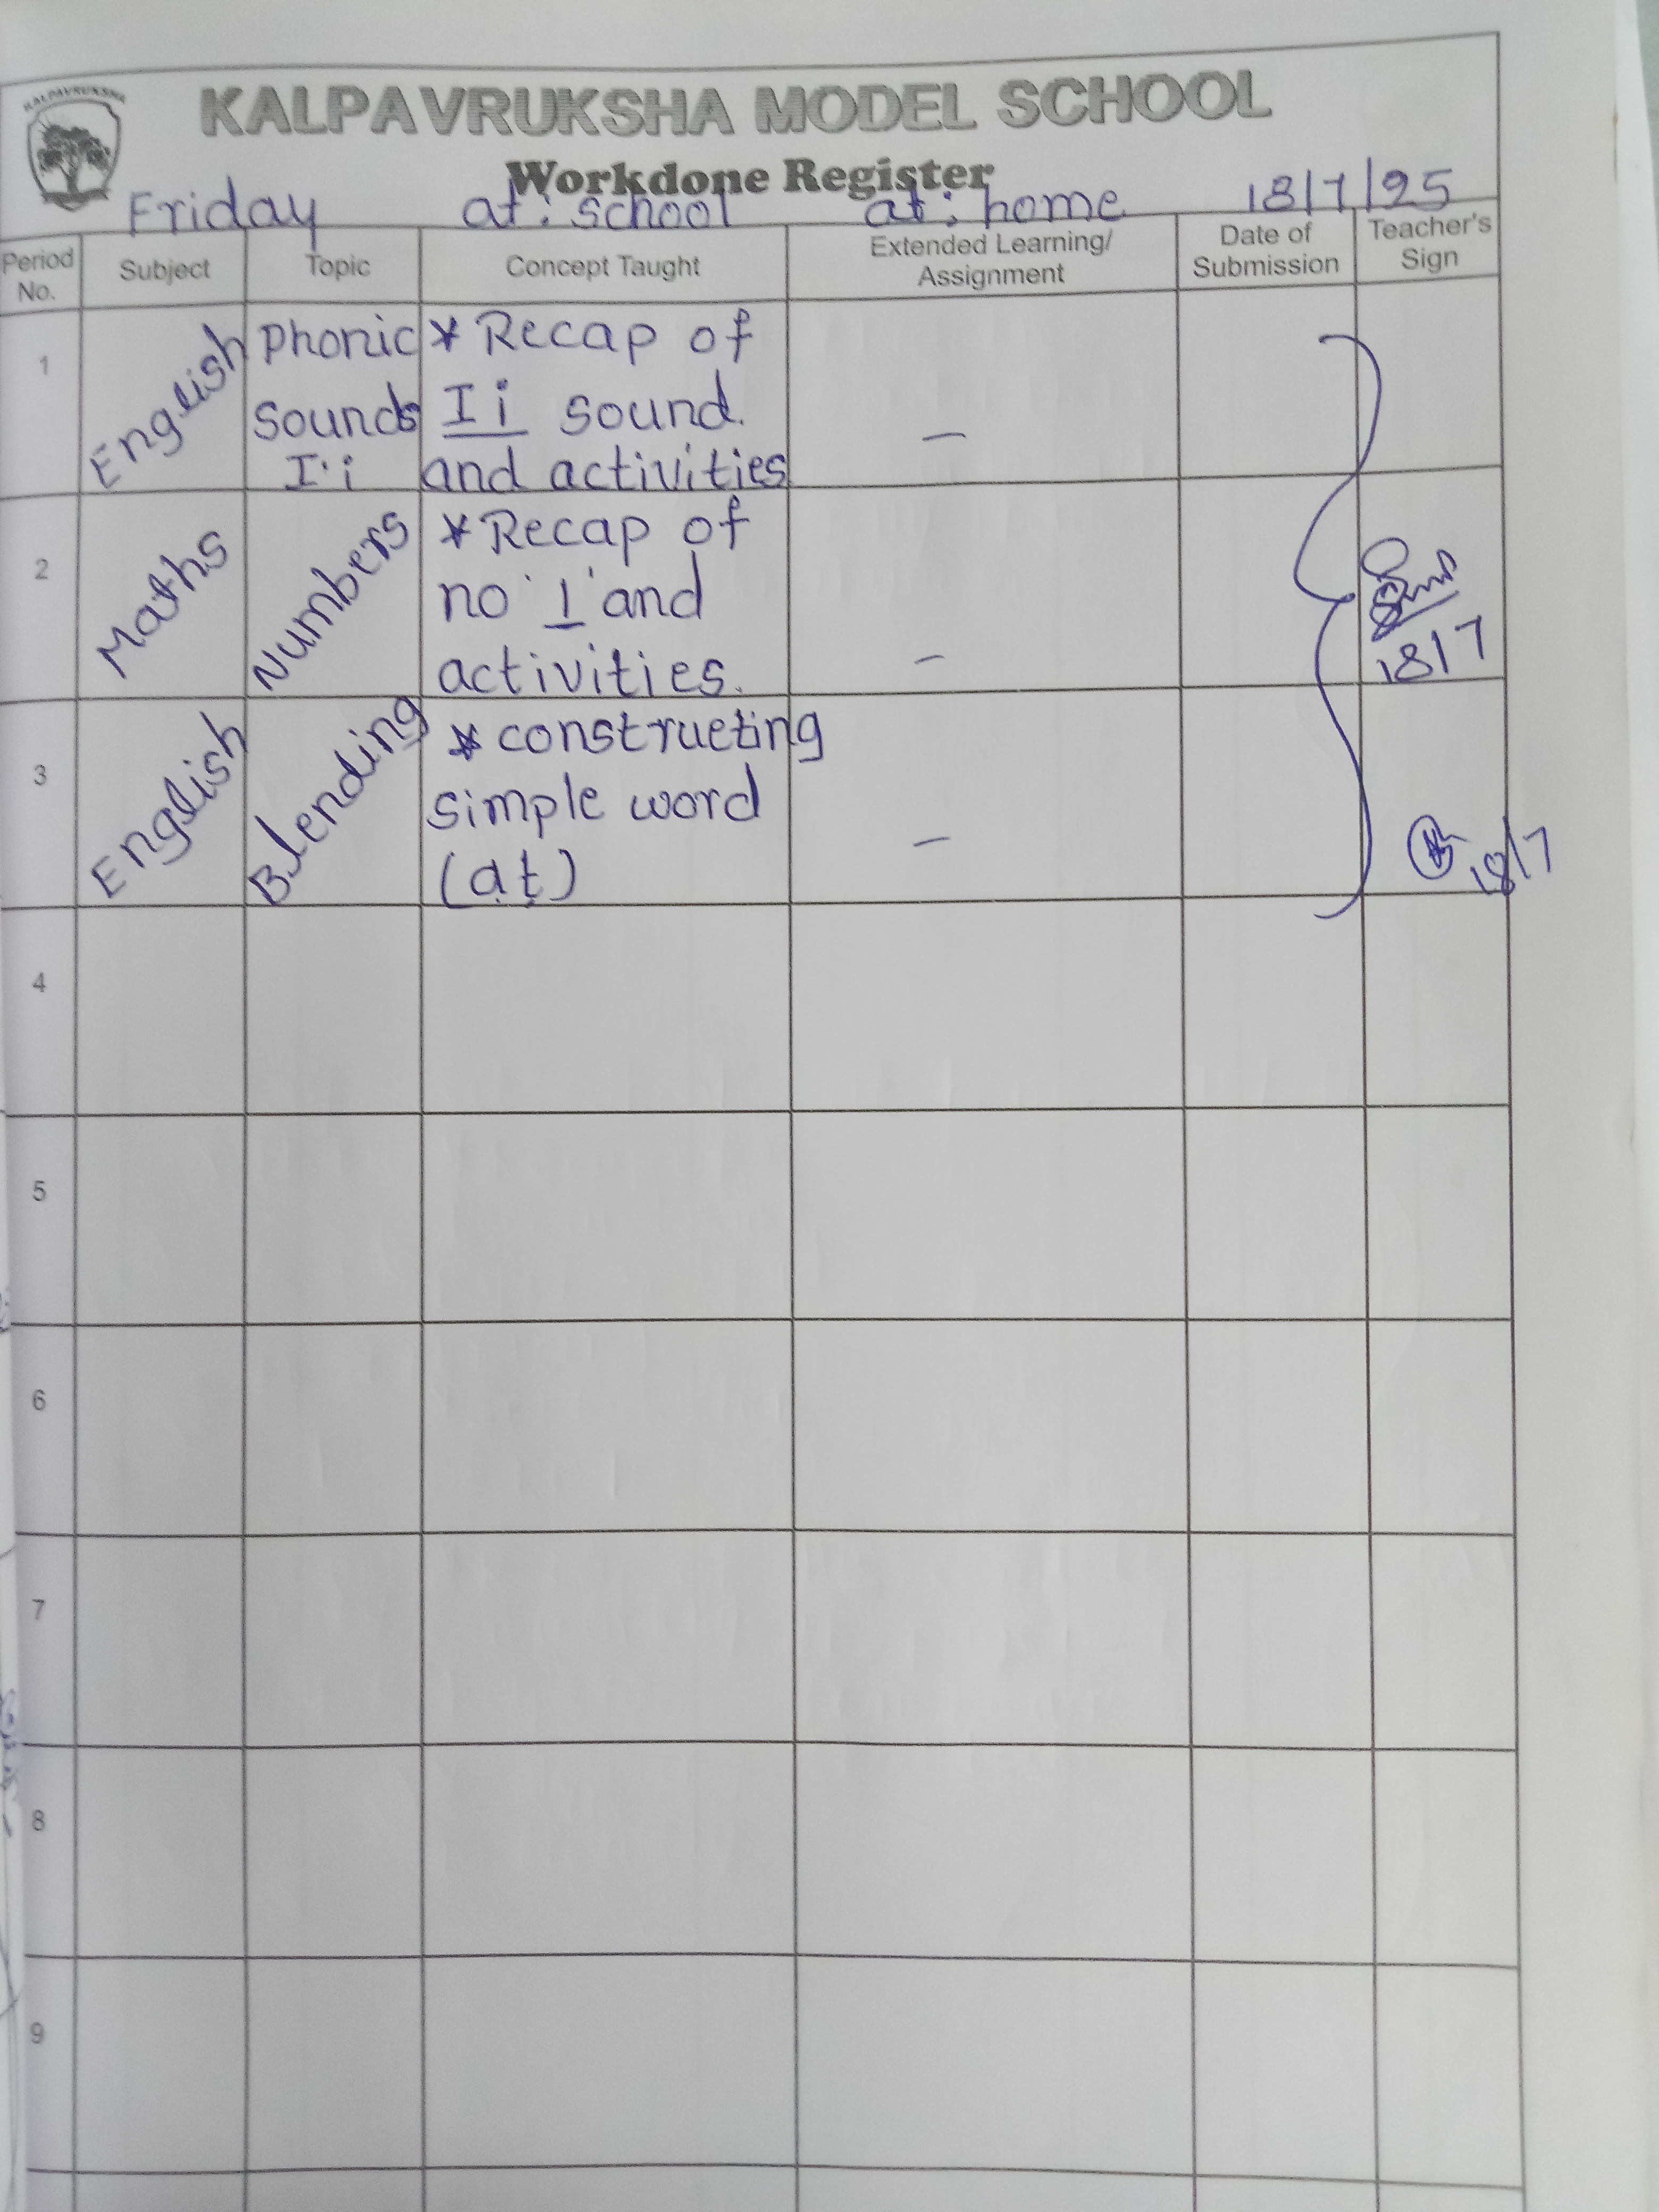 KALPAVRUKSHA
KALPAVRUKSHA MODEL SCHOOL
Workdone Register
Friday at: school at: home 18/7/25
Period No. Subject Topic Concept Taught Extended Learning/ Assignment Date of Submission Teacher's Sign
1 English Phonic Sounds I i * Recap of I i sound. and activities –
2 Maths Numbers * Recap of no '1' and activities. – 18/7
3 English Blending * constructing simple word (at) – 18/7
4
5
6
7
8
9